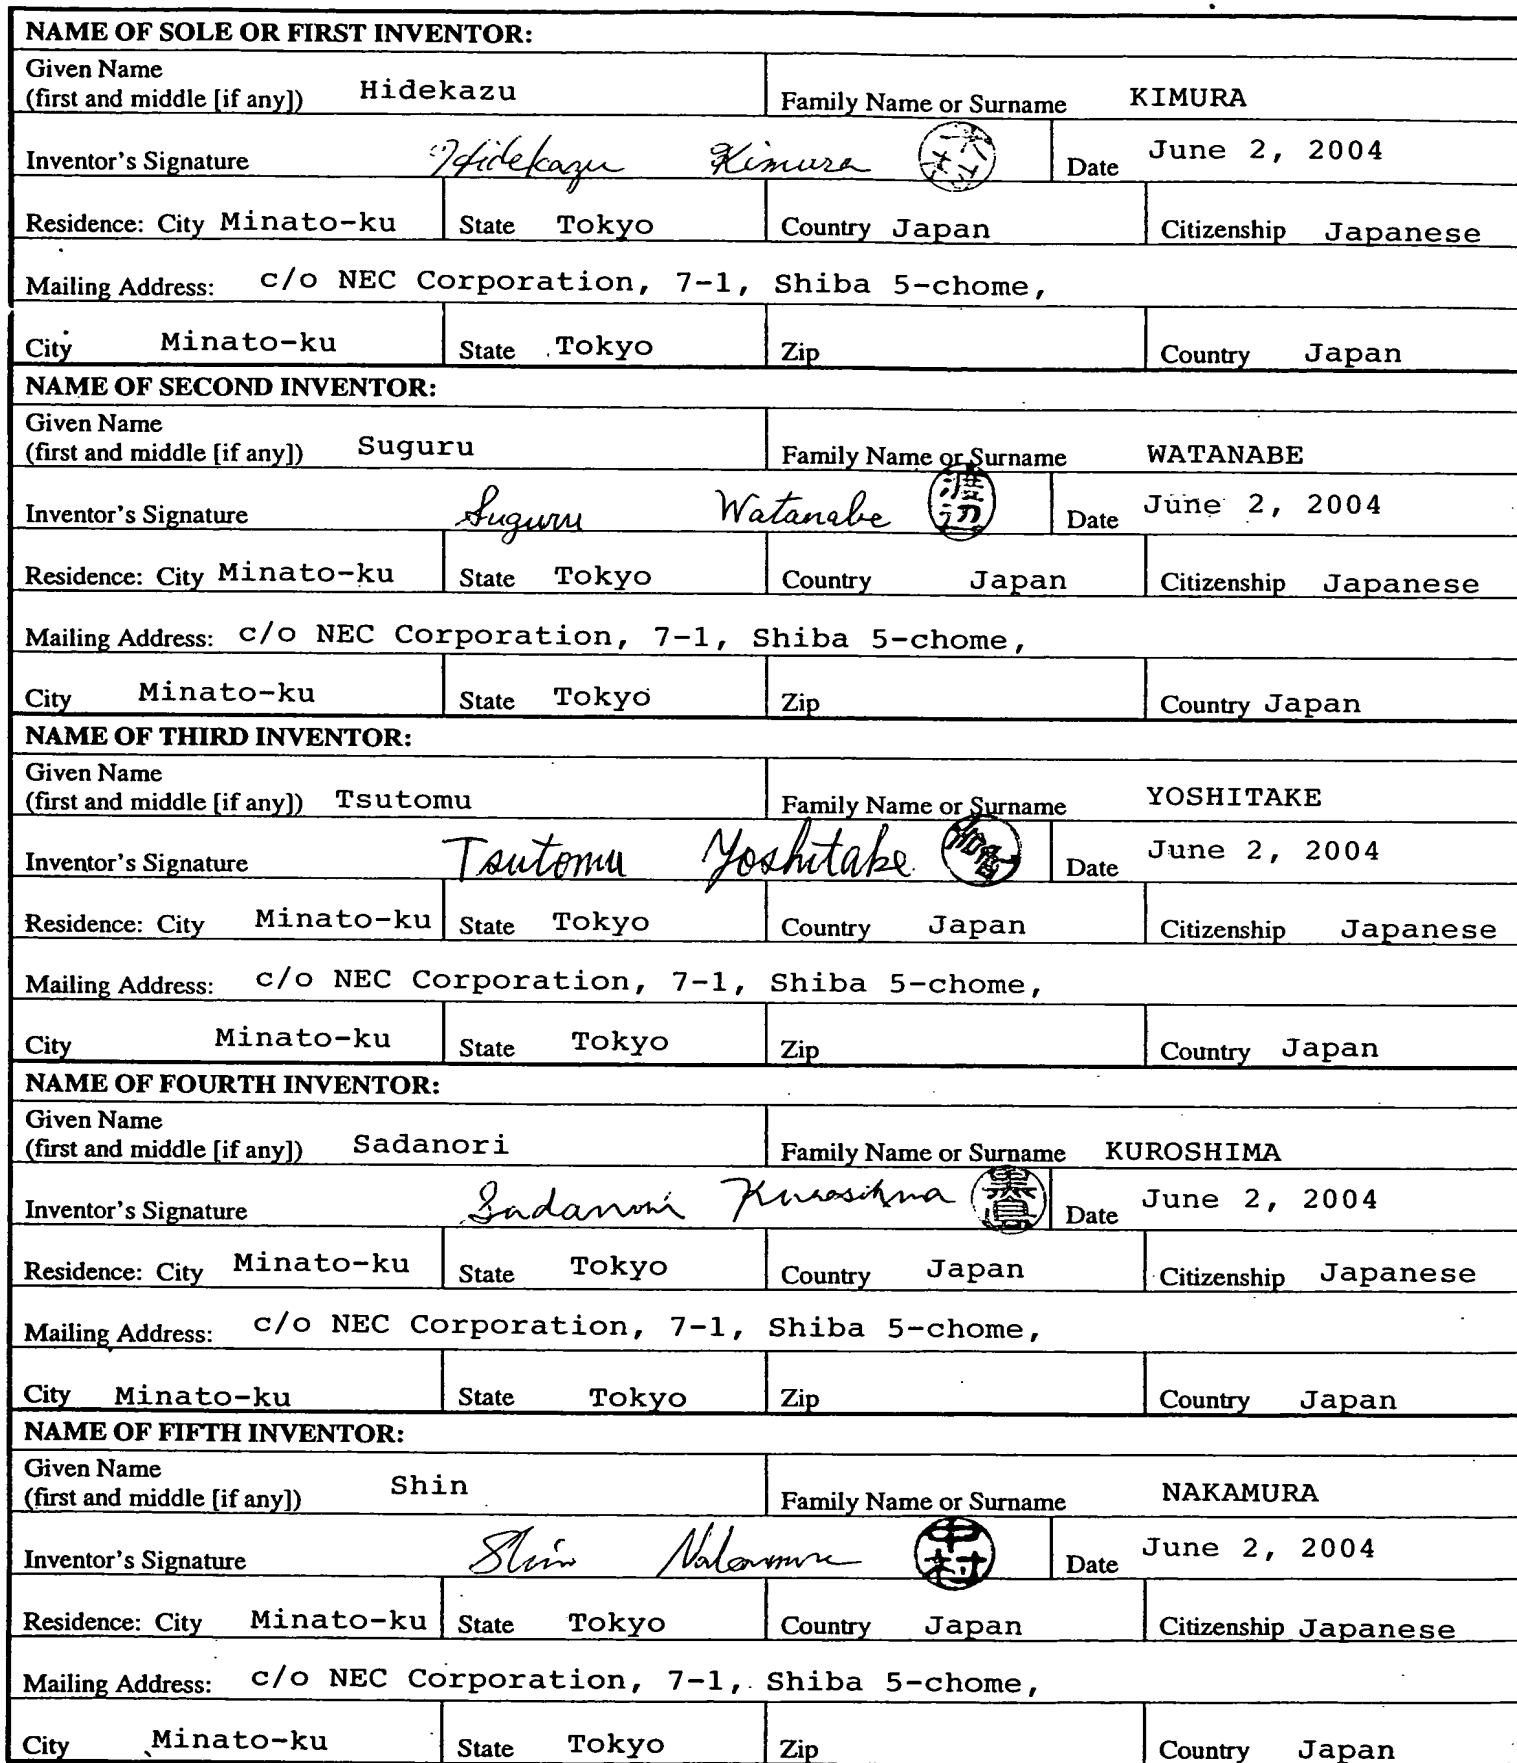 NAME OF SOLE OR FIRST INVENTOR:
Given Name
(first and middle [if any]) Hidekazu Family Name or Surname KIMURA
Inventor's Signature Hidekazu Kimura Date June 2, 2004
Residence: City Minato-ku State Tokyo Country Japan Citizenship Japanese
Mailing Address: c/o NEC Corporation, 7-1, Shiba 5-chome,
City Minato-ku State Tokyo Zip Country Japan
NAME OF SECOND INVENTOR:
Given Name
(first and middle [if any]) Suguru Family Name or Surname WATANABE
Inventor's Signature Suguru Watanabe 渡辺 Date June 2, 2004
Residence: City Minato-ku State Tokyo Country Japan Citizenship Japanese
Mailing Address: c/o NEC Corporation, 7-1, Shiba 5-chome,
City Minato-ku State Tokyo Zip Country Japan
NAME OF THIRD INVENTOR:
Given Name
(first and middle [if any]) Tsutomu Family Name or Surname YOSHITAKE
Inventor's Signature Tsutomu Yoshitake Date June 2, 2004
Residence: City Minato-ku State Tokyo Country Japan Citizenship Japanese
Mailing Address: c/o NEC Corporation, 7-1, Shiba 5-chome,
City Minato-ku State Tokyo Zip Country Japan
NAME OF FOURTH INVENTOR:
Given Name
(first and middle [if any]) Sadanori Family Name or Surname KUROSHIMA
Inventor's Signature Sadanori Kurosihma 黒島 Date June 2, 2004
Residence: City Minato-ku State Tokyo Country Japan Citizenship Japanese
Mailing Address: c/o NEC Corporation, 7-1, Shiba 5-chome,
City Minato-ku State Tokyo Zip Country Japan
NAME OF FIFTH INVENTOR:
Given Name
(first and middle [if any]) Shin Family Name or Surname NAKAMURA
Inventor's Signature Shin Nakamura 中村 Date June 2, 2004
Residence: City Minato-ku State Tokyo Country Japan Citizenship Japanese
Mailing Address: c/o NEC Corporation, 7-1, Shiba 5-chome,
City Minato-ku State Tokyo Zip Country Japan